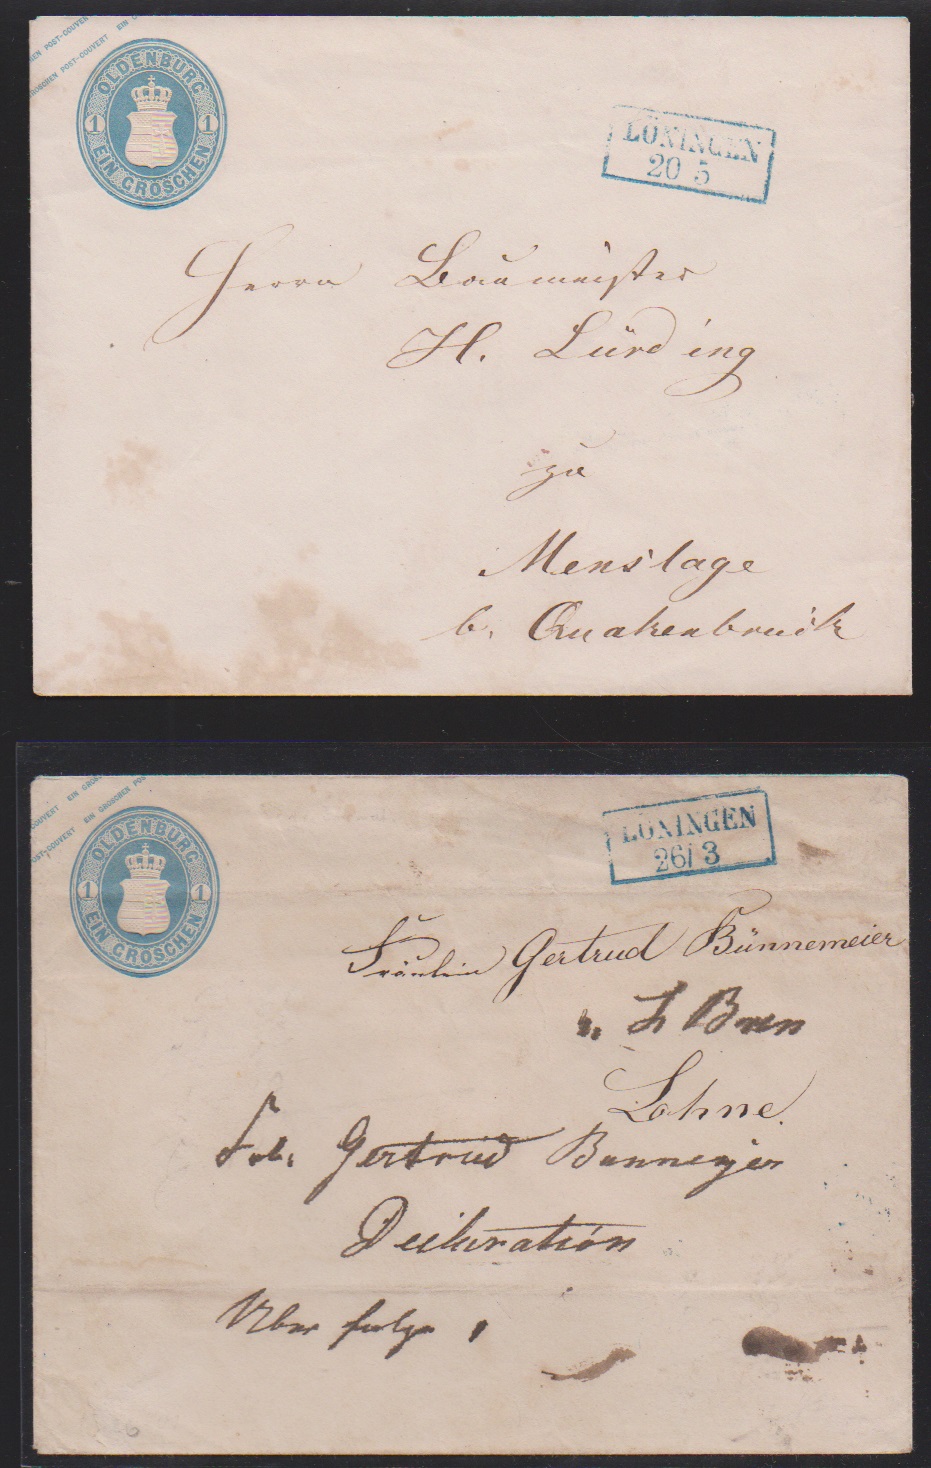 EN POST-COUVER EIN G
GROSCHEN POST-COUVERT
OLDENBURG
1 1
EIN GROSCHEN
LÖNINGEN
20 5
Herrn Baumeister
H. Lürding
zu
Menslage
b. Quakenbrück
COUVERT EIN GROS
POST-COUVERT EIN GROSCHEN POS
OLDENBURG
1 1
EIN GROSCHEN
LÖNINGEN
26/3
Fräulein Gertrud Bünnemeier
Lohne.
Gertrud